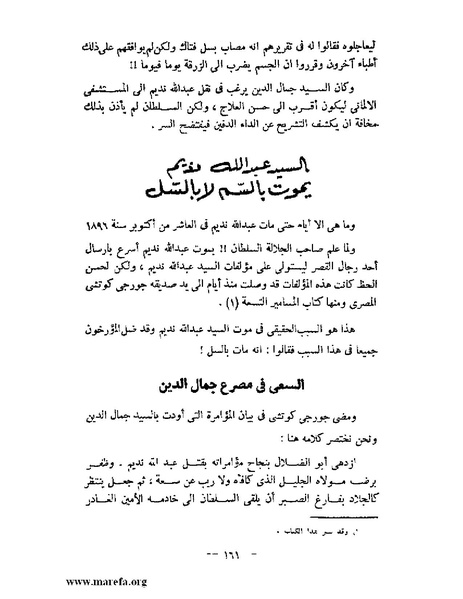 ليعاجلوه فقالوا له فى تقريرهم انه مصاب بسل فتاك ولكن لم يوافقهم على ذلك
أطباء آخرون وقرروا ان الجسم يضرب الى الزرقة يوما فيوما !!
وكان السيد جمال الدين يرغب فى نقل عبدالله نديم الى المستشفى
الالمانى ليكون أقرب الى حسن العلاج ، ولكن السلطان لم يأذن بذلك
مخافة ان يكشف التشريح عن الداء الدفين فيفتضح السر .
السيد عبدالله نديم
يموت بالسم لا بالسل
وما هى الا أيام حتى مات عبدالله نديم فى العاشر من أكتوبر سنة ١٨٩٦
ولما علم صاحب الجلالة السلطان !! بموت عبدالله نديم أسرع بارسال
أحد رجال القصر ليستولى على مؤلفات السيد عبدالله نديم ، ولكن لحسن
الحظ كانت هذه المؤلفات قد وصلت منذ أيام الى يد صديقه جورجى كوتشى
المصرى ومنها كتاب المسامير التسعة (١) .
هذا هو السبب الحقيقى فى موت السيد عبدالله نديم وقد ضل المؤرخون
جميعا فى هذا السبب فقالوا : انه مات بالسل !
السعى فى مصرع جمال الدين
ومضى جورجى كوتشى فى بيان المؤامرة التى أودت بالسيد جمال الدين
ونحن نختصر كلامه هنا :
ازدهى أبو الضلال بنجاح مؤامراته بقتل عبد الله نديم . وظفر
برضى مولاه الجليل الذى كافأه ولا ريب عن سعة ، ثم جعل ينتظر
كالجلاد بفارغ الصبر أن يلقى السلطان الى خادمه الأمين الغادر
وقد نشر هذا الكتاب .
- ١٦١ --
www.marefa.org